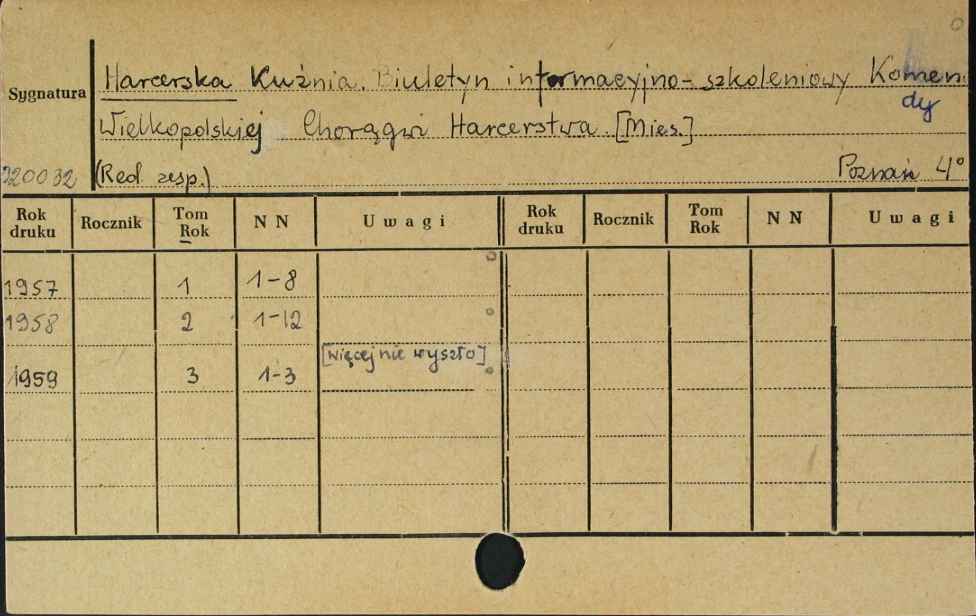 Harcerska Kuźnia. Biuletyn informacyjno-szkoleniowy Komen
dy
Sygnatura
Wielkopolskiej Chorągwi Harcerstwa [Mies.]
220032 (Red. zesp.) Poznań 4°
Rok druku Rocznik Tom Rok NN Uwagi Rok druku Rocznik Tom Rok NN Uwagi
1957 1 1-8
1958 2 1-12
[więcej nie wyszło]
1959 3 1-3